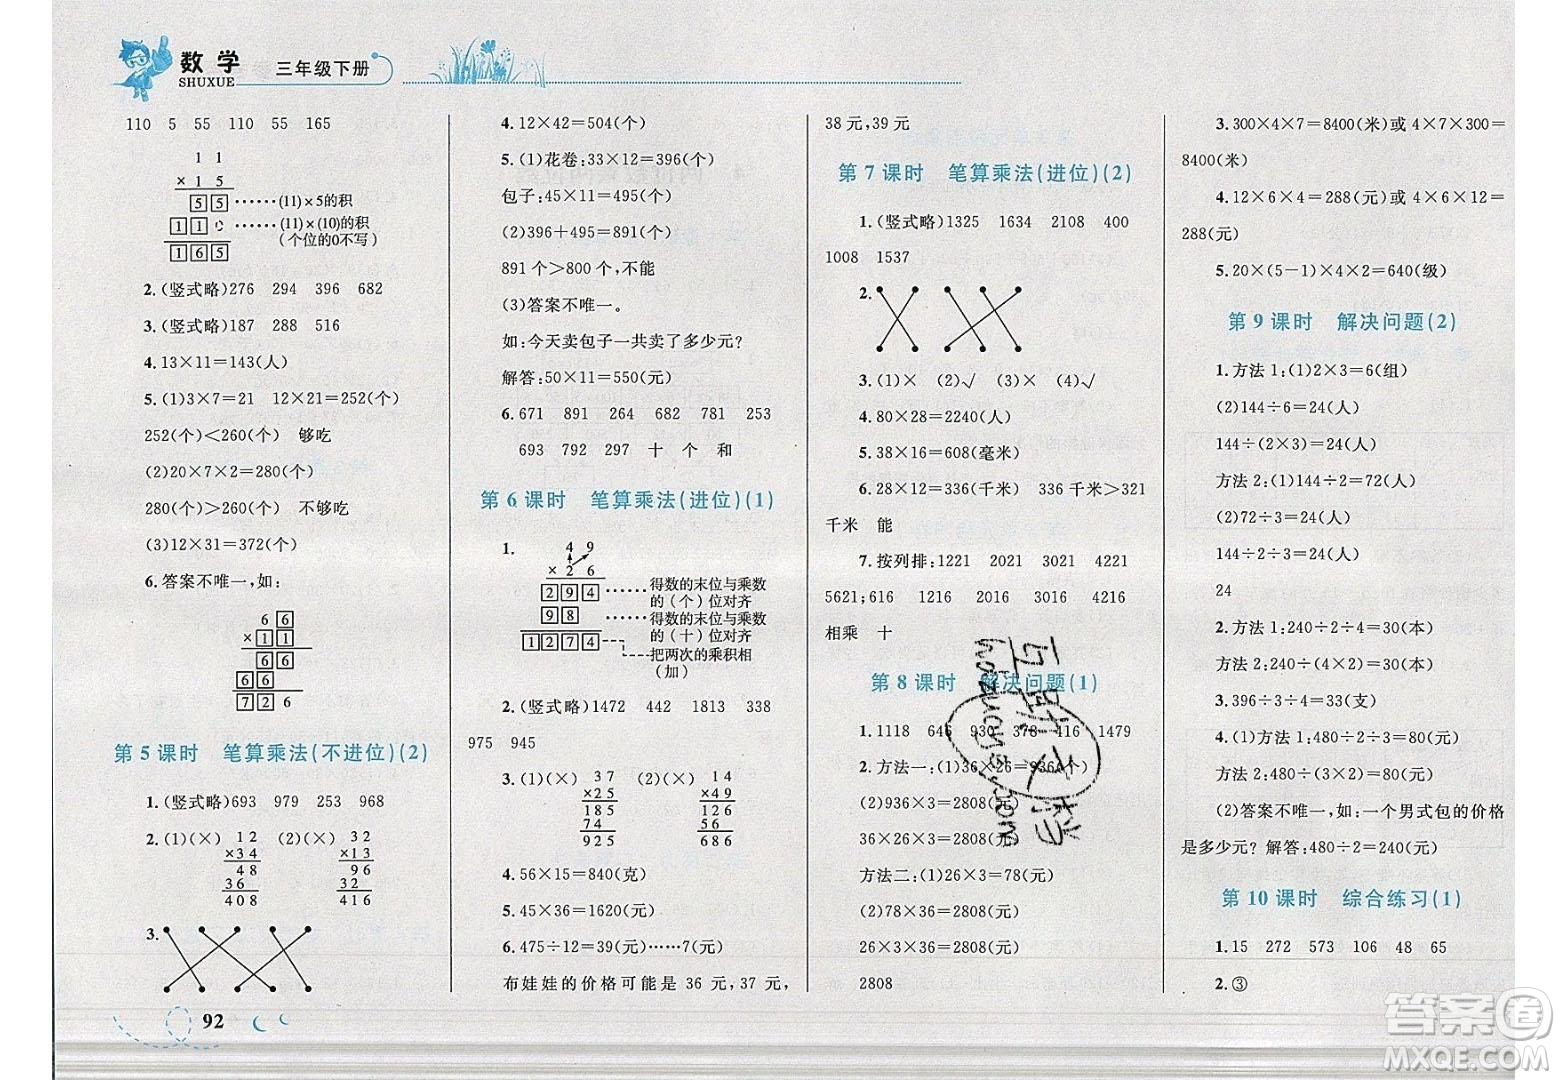 数学
SHUXUE
三年级下册
110 5 55 110 55 165
1 1
× 1 5
5 5 ……(11)×5的积
1 1 0 ……(11)×(10)的积
(个位的0不写)
1 6 5
2.(竖式略)276 294 396 682
3.(竖式略)187 288 516
4.13×11=143(人)
5.(1)3×7=21 12×21=252(个)
252(个)<260(个) 够吃
(2)20×7×2=280(个)
280(个)>260(个) 不够吃
(3)12×31=372(个)
6.答案不唯一,如:
6 6
×1 1
6 6
6 6
7 2 6
第 5 课时 笔算乘法(不进位)(2)
1.(竖式略)693 979 253 968
2.(1)(×) 1 2 (2)(×) 3 2
×3 4 ×1 3
4 8 9 6
3 6 3 2
4 0 8 4 1 6
3.
92
4.12×42=504(个)
5.(1)花卷:33×12=396(个)
包子:45×11=495(个)
(2)396+495=891(个)
891 个>800 个,不能
(3)答案不唯一。
如:今天卖包子一共卖了多少元?
解答:50×11=550(元)
6.671 891 264 682 781 253
693 792 297 十 个 和
第 6 课时 笔算乘法(进位)(1)
1. 4 9
× 2 6
2 9 4 ……得数的末位与乘数
的(个)位对齐
9 8 ……得数的末位与乘数
的(十)位对齐
1 2 7 4 把两次的乘积相
(加)
2.(竖式略)1472 442 1813 338
975 945
3.(1)(×) 3 7 (2)(×) 1 4
×2 5 ×4 9
1 8 5 1 2 6
7 4 5 6
9 2 5 6 8 6
4.56×15=840(克)
5.45×36=1620(元)
6.475÷12=39(元)……7(元)
布娃娃的价格可能是 36 元,37 元,
38 元,39 元
第 7 课时 笔算乘法(进位)(2)
1.(竖式略)1325 1634 2108 400
1008 1537
2.
3.(1)× (2)√ (3)× (4)√
4.80×28=2240(人)
5.38×16=608(毫米)
6.28×12=336(千米) 336 千米>321
千米 能
7.按列排:1221 2021 3021 4221
5621;616 1216 2016 3016 4216
相乘 十
第 8 课时 解决问题(1)
1.1118 646 930 378 416 1479
2.方法一:(1)36×26=936(个)
(2)936×3=2808(元)
36×26×3=2808(元)
方法二:(1)26×3=78(元)
(2)78×36=2808(元)
26×3×36=2808(元)
2808
3.300×4×7=8400(米)或 4×7×300=
8400(米)
4.12×6×4=288(元)或 4×6×12=
288(元)
5.20×(5-1)×4×2=640(级)
第 9 课时 解决问题(2)
1.方法 1:(1)2×3=6(组)
(2)144÷6=24(人)
144÷(2×3)=24(人)
方法 2:(1)144÷2=72(人)
(2)72÷3=24(人)
144÷2÷3=24(人)
24
2.方法 1:240÷2÷4=30(本)
方法 2:240÷(2×4)=30(本)
3.396÷3÷4=33(支)
4.(1)方法 1:480÷2÷3=80(元)
方法 2:480÷(3×2)=80(元)
(2)答案不唯一,如:一个男式包的价格
是多少元? 解答:480÷2=240(元)
第 10 课时 综合练习(1)
1.15 272 573 106 48 65
2.③
答案圈
MXQE.COM